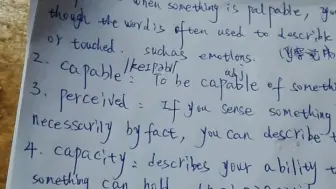 when something is palpable, you
though the word is often used to describe
or touched. such as emotions.
2. capable /keɪpəbl/ adj To be capable of someth
3. perceived: If you sense something
necessarily by fact, you can describe t
4. capacity: describes your ability
something can hold